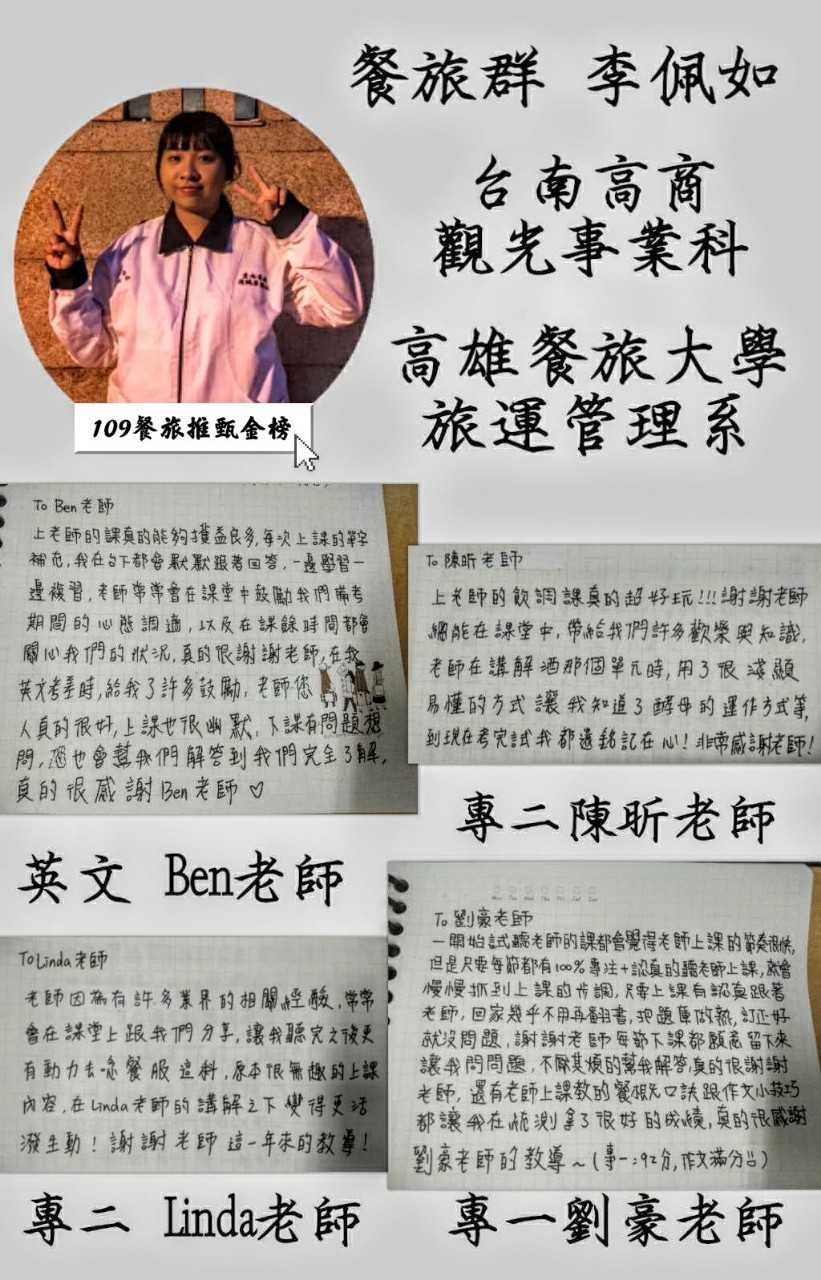 餐旅群 李佩如
台南高商
觀光事業科
高雄餐旅大學
旅運管理系
109餐旅推甄金榜
To Ben老師
上老師的課真的能夠獲益良多,每次上課的單字
補充,我在台下都會默默跟著回答,一邊學習一
邊複習,老師常常會在課堂中鼓勵我們備考
期間的心態調適,以及在課餘時間都會
關心我們的狀況,真的很謝謝老師,在我
英文考差時,給我了許多鼓勵,老師您
人真的很好,上課也很幽默,下課有問題想
問,您也會幫我們解答到我們完全了解,
真的很感謝Ben老師♡
英文 Ben老師
To 陳昕老師
上老師的飲調課真的超好玩!!!謝謝老師
總能在課堂中,帶給我們許多歡樂與知識,
老師在講解酒那個單元時,用了很淺顯
易懂的方式讓我知道了酵母的運作方式等,
到現在考完試我都還銘記在心!非常感謝老師!
專二陳昕老師
To Linda老師
老師因為有許多業界的相關經驗,常常
會在課堂上跟我們分享,讓我聽完之後更
有動力去唸餐服這科,原本很無趣的上課
內容,在Linda老師的講解之下變得更活
潑生動!謝謝老師這一年來的教導!
專二 Linda老師
To 劉豪老師
一開始試聽老師的課都會覺得老師上課的節奏很快,
但是只要每節都有100%專注+認真的聽老師上課,就會
慢慢抓到上課的步調,只要上課有認真跟著
老師,回家幾乎不用再翻書,把題庫做熟,訂正好
就沒問題,謝謝老師每節下課都願意留下來
讓我問問題,不厭其煩的幫我解答,真的很謝謝
老師,還有老師上課教的餐概口訣跟作文小技巧
都讓我在統測拿了很好的成績,真的很感謝
劉豪老師的教導~(專一:92分,作文滿分)
專一劉豪老師